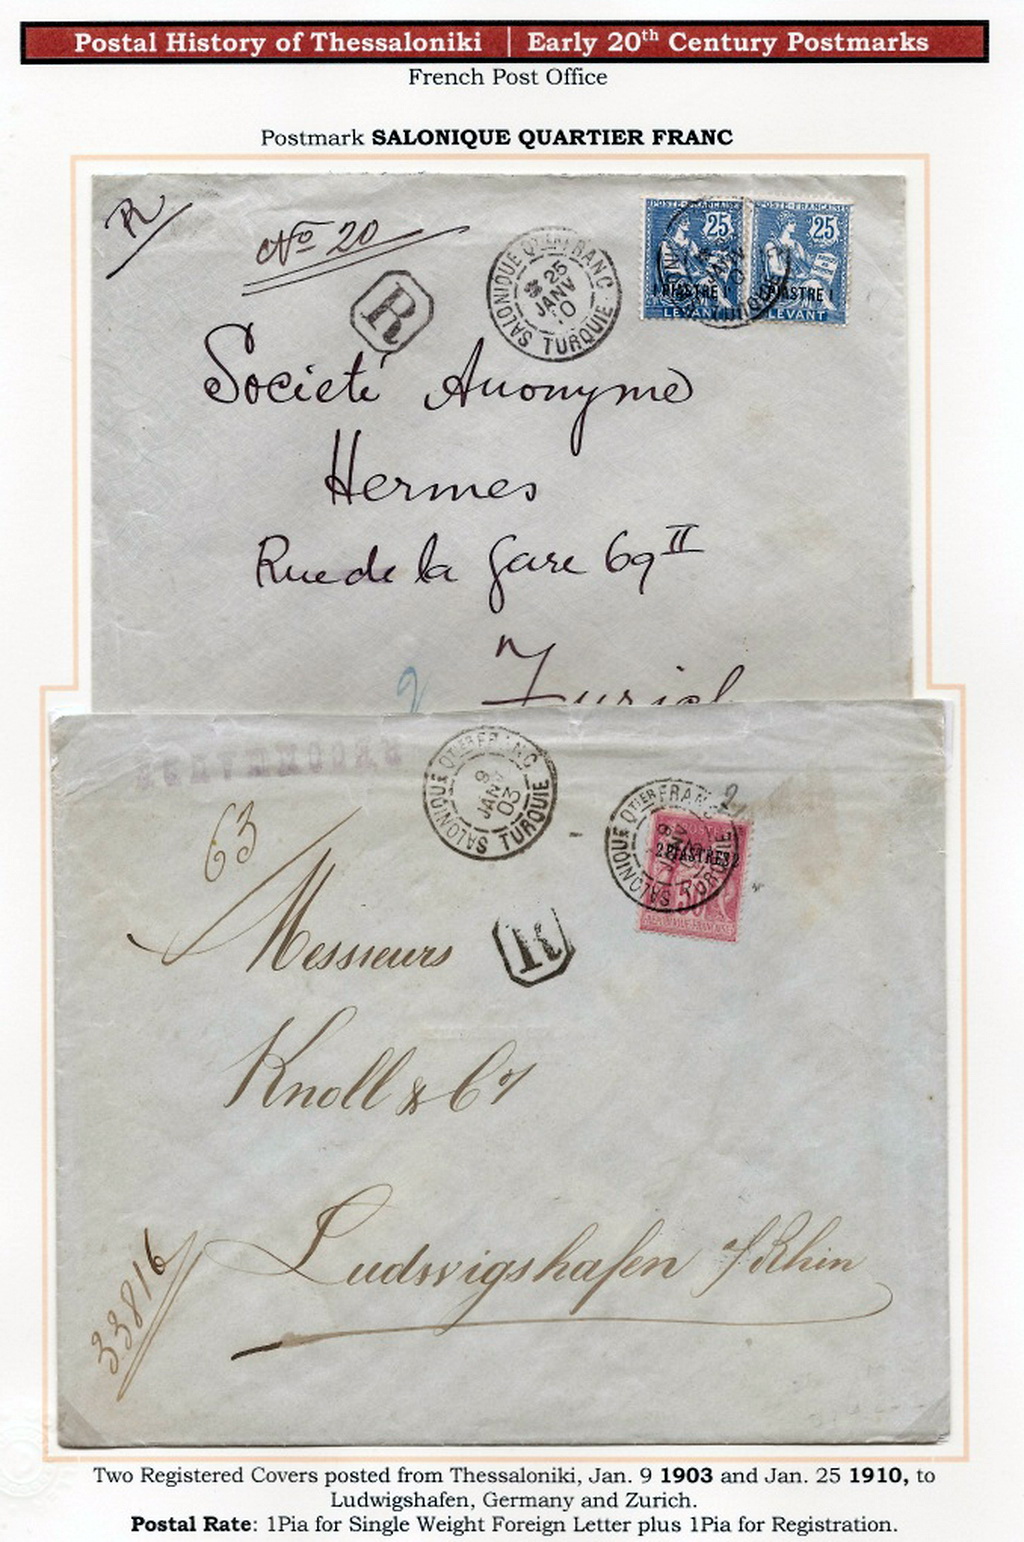 Postal History of Thessaloniki | Early 20th Century Postmarks
French Post Office
Postmark SALONIQUE QUARTIER FRANC
R
No 20
R
SALONIQUE QTIER FRANC
25
JANV
10
TURQUIE
POSTE FRANÇAISE
25
1 PIASTRE 1
LEVANT
POSTE FRANÇAISE
25
1 PIASTRE 1
LEVANT
Societé Anonyme
Hermes
Rue de la Gare 69 II
2
Zurich
SALONIQUE QTIER FRANC
9
JANV
03
TURQUIE
SALONIQUE QTIER FRANC
TURQUIE
2
2 PIASTRES 2
50
63
R
Messieurs
Knoll & Co
Ludwigshafen s/Rhin
33816
Two Registered Covers posted from Thessaloniki, Jan. 9 1903 and Jan. 25 1910, to
Ludwigshafen, Germany and Zurich.
Postal Rate: 1Pia for Single Weight Foreign Letter plus 1Pia for Registration.